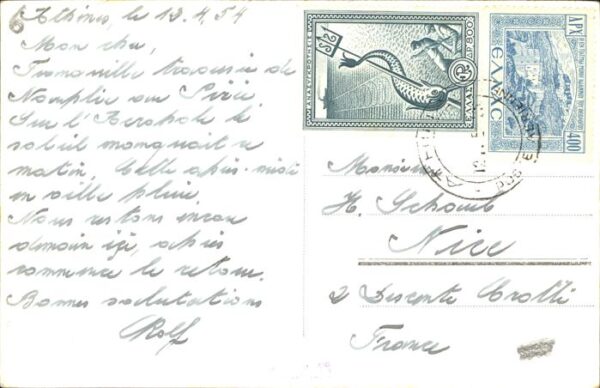 Athènes, le 13.4.54
Mon cher,
Tranquille traversée de
Nauplie au Pirée
Sur l'Acropole le
soleil manquait ce
matin. Cette après-midi
en ville pluie.
Nous restons encore
demain ici, après
commence le retour.
Bonnes salutations
Rolf
800
ΕΛΛΑΣ
400
Monsieur
H. Schaub
Nice
2 Descente Crotti
France